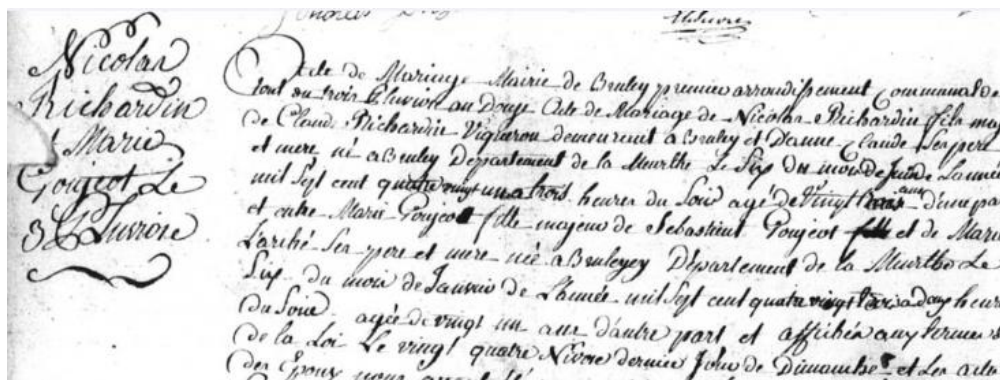 Pluviose
Nicolas
Richardin
& Marie
Goujeot Le
3 Pluviose
Acte de Mariage Mairie de Bruley premier arrondissement Communal de
toul du trois Pluviose an Douze Acte de Mariage de Nicolas Richardin fils maj
de Claude Richardin Vigneron demeurent a Bruley et D'anne Claude Ses pere
et mere né a Bruley Département de la Meurthe Le Six du mois de Juin de Lannée
mil Sept cent quatre vingt un a trois heures du Soir agé de Vingt ans d'une par
et entre Marie Goujeot fille majeure de Sebastient Goujeot et de Marie
L'arché Ses pere et mere née a Bruleyey Département de la Meurthe Le
Six du mois de Janvier de L'année mil Sept cent quatre vingt trois a deux heur
du Soire agée de vingt un ans d'autre part et affichés aux termes
de la Loi Le vingt quatre Nivose dernier Jour de Dimanche et Les actes
des Epoux nous